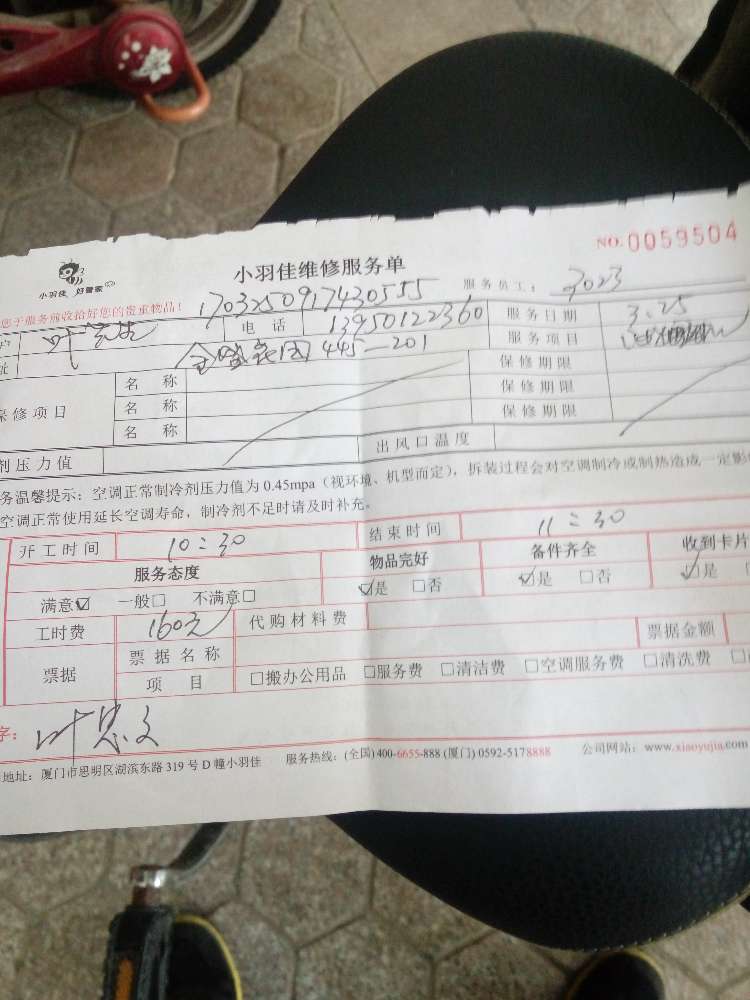 NO. 0059504
小羽佳 好管家
小羽佳维修服务单
服务员工: 3023
您于服务前收拾好您的贵重物品! 1703250917430555
叶 电话 13950122360 服务日期 3.25
址 花园 445-201 服务项目
保修项目 名称 保修期限
名称 保修期限
名称 保修期限
剂压力值 出风口温度
务温馨提示: 空调正常制冷剂压力值为 0.45mpa (视环境、机型而定), 拆装过程会对空调制冷或制热造成一定影
空调正常使用延长空调寿命, 制冷剂不足时请及时补充。
开工时间 10:30 结束时间 11:30
服务态度 物品完好 备件齐全 收到卡片
满意☑ 一般□ 不满意□ ☑是 □否 ☑是 □否 ☑是
工时费 160元 代购材料费
票据 票据名称 票据金额
项目 □搬办公用品 □服务费 □清洁费 □空调服务费 □清洗费
字: 叶
地址: 厦门市思明区湖滨东路 319 号 D 幢小羽佳 服务热线: (全国) 400-6655-888 (厦门) 0592-5178888 公司网站: www.xiaoyujia.com